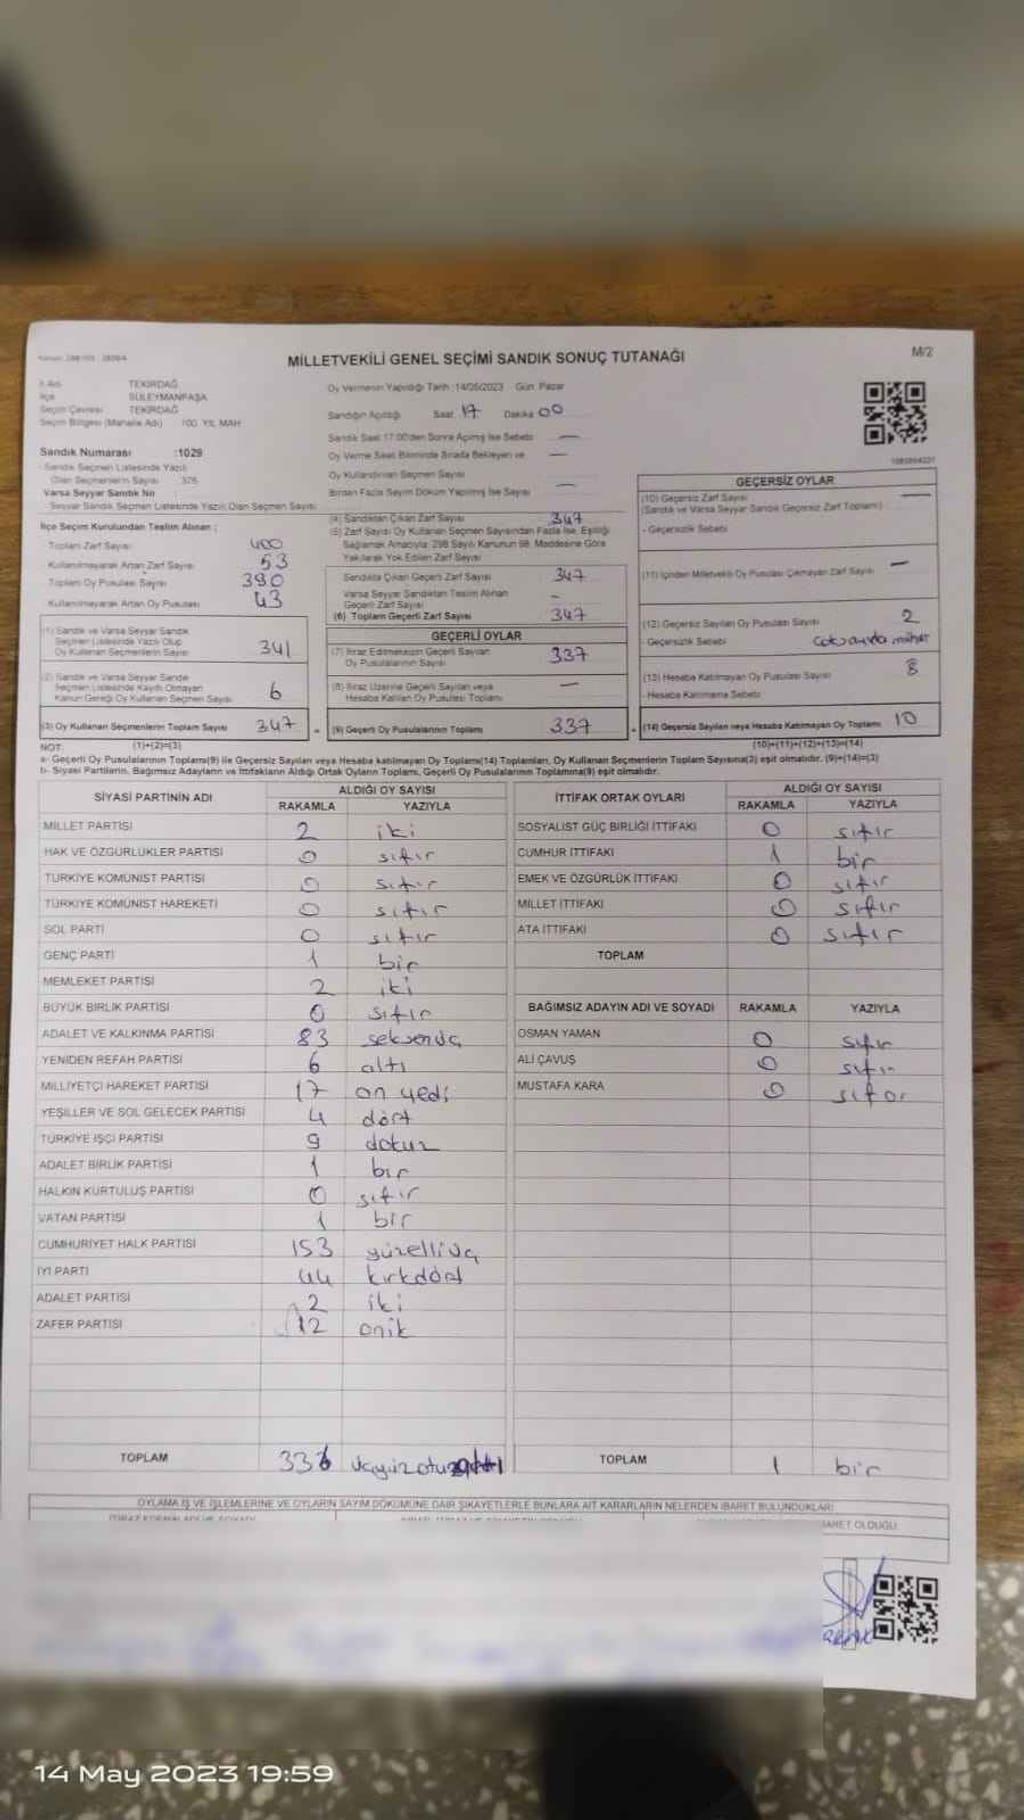 MİLLETVEKİLİ GENEL SEÇİMİ SANDIK SONUÇ TUTANAĞI
M/2
İl Adı TEKİRDAĞ
İlçe SÜLEYMANPAŞA
Seçim Çevresi TEKİRDAĞ
Seçim Bölgesi (Mahalle Adı) 100. YIL MAH
Sandık Numarası :1029
Sandık Seçmen Listesinde Yazılı
Olan Seçmenlerin Sayısı 376
Varsa Seyyar Sandık No
Seyyar Sandık Seçmen Listesinde Yazılı Olan Seçmen Sayısı
Oy Vermenin Yapıldığı Tarih :14/05/2023 Gün: Pazar
Sandığın Açıldığı Saat 17 Dakika 00
Sandık Saat 17:00'den Sonra Açılmış İse Sebebi —
Oy Verme Saati Bitiminde Sırada Bekleyen ve —
Oy Kullandırılan Seçmen Sayısı
Birden Fazla Sayım Döküm Yapılmış İse Sayısı —
İlçe Seçim Kurulundan Teslim Alınan ;
Toplam Zarf Sayısı 400
Kullanılmayarak Artan Zarf Sayısı 53
Toplam Oy Pusulası Sayısı 390
Kullanılmayarak Artan Oy Pusulası 43
(1) Sandık ve Varsa Seyyar Sandık
Seçmen Listesinde Yazılı Olup
Oy Kullanan Seçmenlerin Sayısı 341
(2) Sandık ve Varsa Seyyar Sandık
Seçmen Listesinde Kaydı Olmayan
Kanun Gereği Oy Kullanan Seçmen Sayısı 6
(3) Oy Kullanan Seçmenlerin Toplam Sayısı 347
(4) Sandıktan Çıkan Zarf Sayısı 347
(5) Zarf Sayısı Oy Kullanan Seçmen Sayısından Fazla İse, Eşitliği
Sağlamak Amacıyla 298 Sayılı Kanunun 98. Maddesine Göre
Yakılarak Yok Edilen Zarf Sayısı
Sandıkta Çıkan Geçerli Zarf Sayısı 347
Varsa Seyyar Sandıktan Teslim Alınan
Geçerli Zarf Sayısı -
(6) Toplam Geçerli Zarf Sayısı 347
GEÇERLİ OYLAR
(7) İtiraz Edilmeksizin Geçerli Sayılan
Oy Pusulalarının Sayısı 337
(8) İtiraz Üzerine Geçerli Sayılan veya
Hesaba Katılan Oy Pusulası Toplamı —
(9) Geçerli Oy Pusulalarının Toplamı 337
GEÇERSİZ OYLAR
(10) Geçersiz Zarf Sayısı —
(Sandık ve Varsa Seyyar Sandık Geçersiz Zarf Toplamı)
- Geçersizlik Sebebi
(11) İçinden Milletvekili Oy Pusulası Çıkmayan Zarf Sayısı —
(12) Geçersiz Sayılan Oy Pusulası Sayısı 2
- Geçersizlik Sebebi
(13) Hesaba Katılmayan Oy Pusulası Sayısı 8
- Hesaba Katılmama Sebebi
(14) Geçersiz Sayılan veya Hesaba Katılmayan Oy Toplamı 10
NOT: (1)+(2)=(3) (10)+(11)+(12)+(13)=(14)
a- Geçerli Oy Pusulalarının Toplamı(9) ile Geçersiz Sayılan veya Hesaba katılmayan Oy Toplamı(14) Toplamları, Oy Kullanan Seçmenlerin Toplam Sayısına(3) eşit olmalıdır. (9)+(14)=(3)
b- Siyasi Partilerin, Bağımsız Adayların ve İttifakların Aldığı Ortak Oyların Toplamı, Geçerli Oy Pusulalarının Toplamına(9) eşit olmalıdır.
SİYASİ PARTİNİN ADI ALDIĞI OY SAYISI
RAKAMLA YAZIYLA
MİLLET PARTİSİ 2 iki
HAK VE ÖZGÜRLÜKLER PARTİSİ 0 sıfır
TÜRKİYE KOMÜNİST PARTİSİ 0 sıfır
TÜRKİYE KOMÜNİST HAREKETİ 0 sıfır
SOL PARTİ 0 sıfır
GENÇ PARTİ 1 bir
MEMLEKET PARTİSİ 2 iki
BÜYÜK BİRLİK PARTİSİ 0 sıfır
ADALET VE KALKINMA PARTİSİ 83 seksenüç
YENİDEN REFAH PARTİSİ 6 altı
MİLLİYETÇİ HAREKET PARTİSİ 17 on yedi
YEŞİLLER VE SOL GELECEK PARTİSİ 4 dört
TÜRKİYE İŞÇİ PARTİSİ 9 dokuz
ADALET BİRLİK PARTİSİ 1 bir
HALKIN KURTULUŞ PARTİSİ 0 sıfır
VATAN PARTİSİ 1 bir
CUMHURİYET HALK PARTİSİ 153 yüzelliüç
İYİ PARTİ 44 kırkdört
ADALET PARTİSİ 2 iki
ZAFER PARTİSİ 12 onik
TOPLAM 336 üçyüzotuzaltı
İTTİFAK ORTAK OYLARI ALDIĞI OY SAYISI
RAKAMLA YAZIYLA
SOSYALİST GÜÇ BİRLİĞİ İTTİFAKI 0 sıfır
CUMHUR İTTİFAKI 1 bir
EMEK VE ÖZGÜRLÜK İTTİFAKI 0 sıfır
MİLLET İTTİFAKI 0 sıfır
ATA İTTİFAKI 0 sıfır
TOPLAM
BAĞIMSIZ ADAYIN ADI VE SOYADI RAKAMLA YAZIYLA
OSMAN YAMAN 0 sıfır
ALİ ÇAVUŞ 0 sıfır
MUSTAFA KARA 0 sıfır
TOPLAM 1 bir
OYLAMA İŞ VE İŞLEMLERİNE VE OYLARIN SAYIM DÖKÜMÜNE DAİR ŞİKAYETLERLE BUNLARA AİT KARARLARIN NELERDEN İBARET BULUNDUKLARI
14 May 2023 19:59